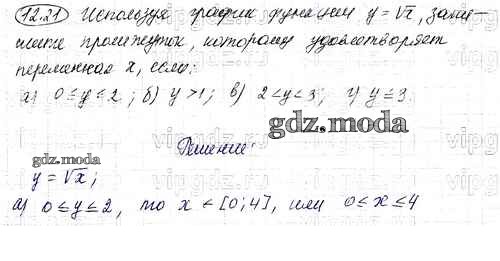 12.21 Используя график функции y = √x, запи-
шите промежуток, которому удовлетворяет
переменная x, если:
а) 0 ≤ y ≤ 2; б) y > 1; в) 2 < y < 3; г) y ≤ 3.
gdz.moda
gdz.moda Решение
y = √x;
а) 0 ≤ y ≤ 2, то x ∈ [0; 4], или 0 ≤ x ≤ 4